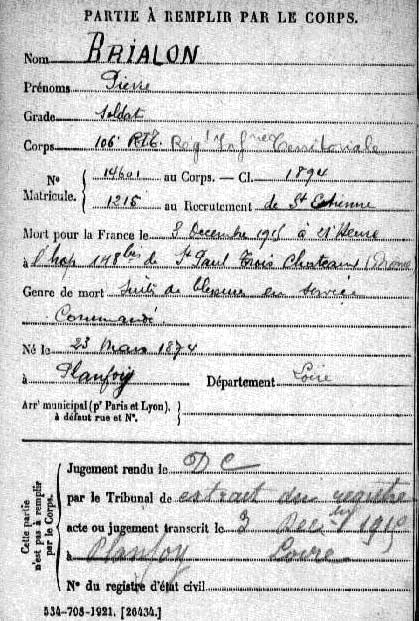 PARTIE À REMPLIR PAR LE CORPS.
Nom BRIALON
Prénoms Pierre
Grade Soldat
Corps 106e RIT. Régt Infrie Territoriale
N° Matricule. { 14601 au Corps. — Cl. 1894
1215 au Recrutement de St Etienne
Mort pour la France le 3 Decembre 1915 à 21 Heure
à l'hop 148bis de St Paul Trois Chateaux (Drome
Genre de mort Suite de blessure en service
Commandé.
Né le 23 Mars 1874
à Planfoy Département Loire
Arrt municipal (pr Paris et Lyon), }
à défaut rue et N°. }
Cette partie n'est pas à remplir par le Corps.
Jugement rendu le DC
par le Tribunal de extrait du registre
acte ou jugement transcrit le 3 1915
à Planfoy Loire
N° du registre d'état civil
534-708-1921. [26434.]